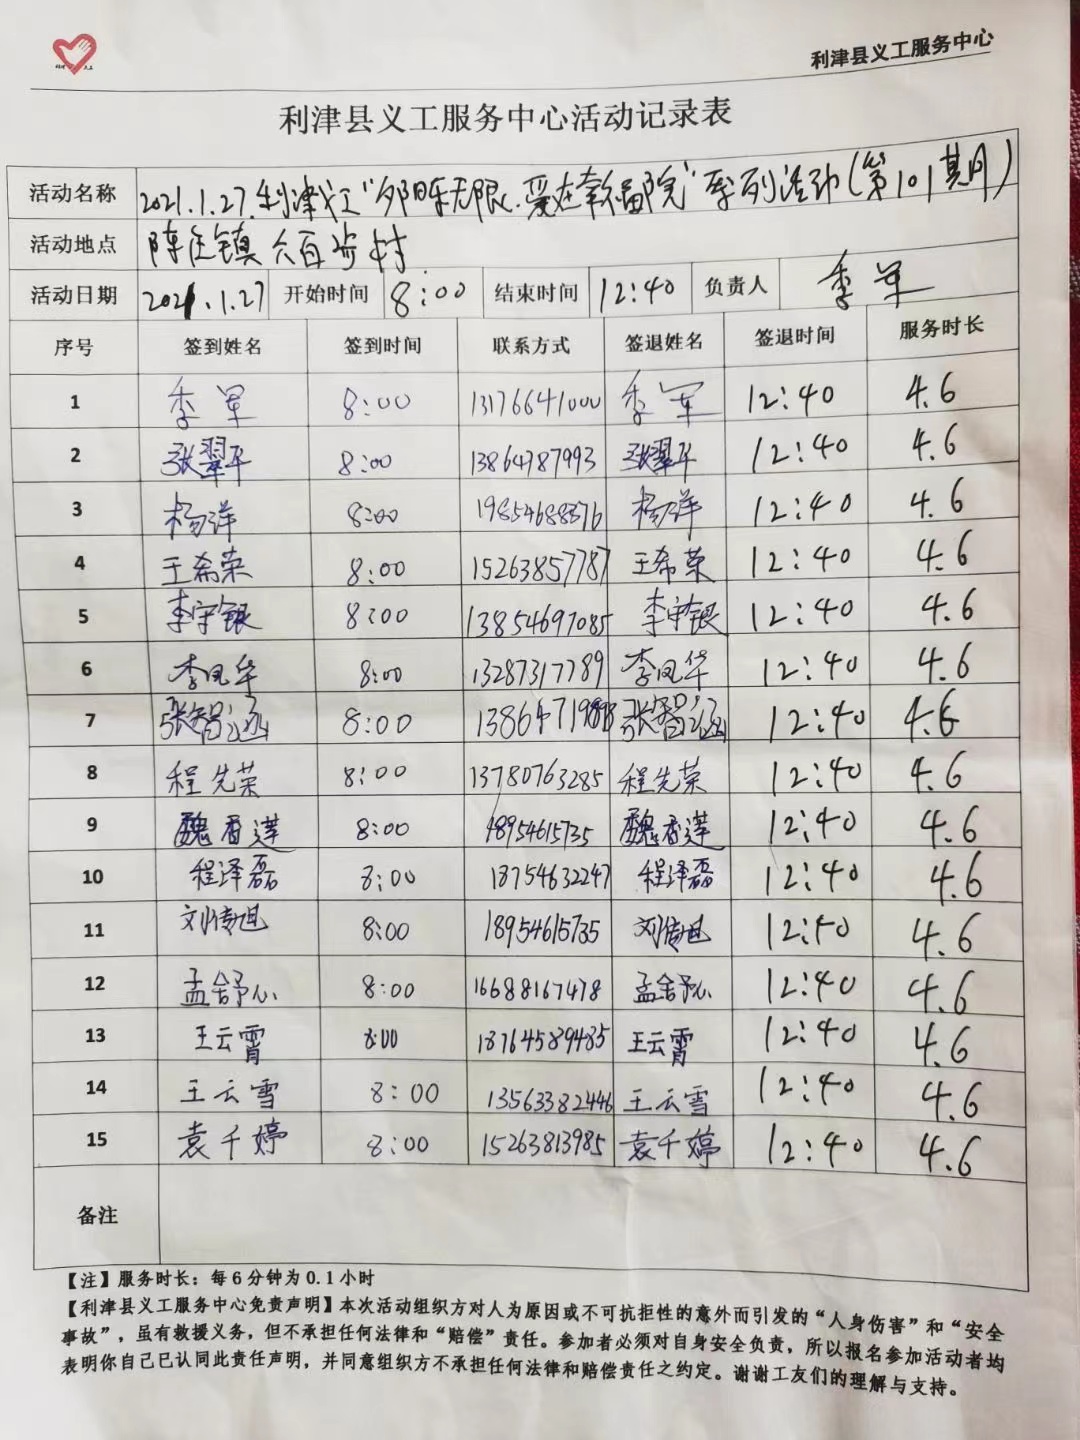 利津县义工服务中心
利津县义工服务中心活动记录表
活动名称 2021.1.27.利津义工"夕阳无限.爱在幸福院"系列活动(第101期)
活动地点 陈庄镇六百步村
活动日期 2021.1.27 开始时间 8:00 结束时间 12:40 负责人 李军
序号 签到姓名 签到时间 联系方式 签退姓名 签退时间 服务时长
1 李军 8:00 13176641000 李军 12:40 4.6
2 张翠平 8:00 13864787993 张翠平 12:40 4.6
3 杨洋 8:00 19854688876 杨洋 12:40 4.6
4 王希荣 8:00 15263857787 王希荣 12:40 4.6
5 李守银 8:00 13854697085 李守银 12:40 4.6
6 李凤华 8:00 13287317789 李凤华 12:40 4.6
7 张智涵 8:00 张智涵 12:40 4.6
8 程先荣 8:00 13780763285 程先荣 12:40 4.6
9 魏香莲 8:00 18954615735 魏香莲 12:40 4.6
10 程泽磊 8:00 18754632247 程泽磊 12:40 4.6
11 刘传旭 8:00 18954615735 刘传旭 12:40 4.6
12 孟舒心 8:00 16688167478 孟舒心 12:40 4.6
13 王云霄 8:00 18764589485 王云霄 12:40 4.6
14 王云雪 8:00 13563382446 王云雪 12:40 4.6
15 袁千婷 8:00 15263813985 袁千婷 12:40 4.6
备注
【注】服务时长：每6分钟为0.1小时
【利津县义工服务中心免责声明】本次活动组织方对人为原因或不可抗拒性的意外而引发的“人身伤害”和“安全
事故”，虽有救援义务，但不承担任何法律和“赔偿”责任。参加者必须对自身安全负责，所以报名参加活动者均
表明你自己已认同此责任声明，并同意组织方不承担任何法律和赔偿责任之约定。谢谢工友们的理解与支持。